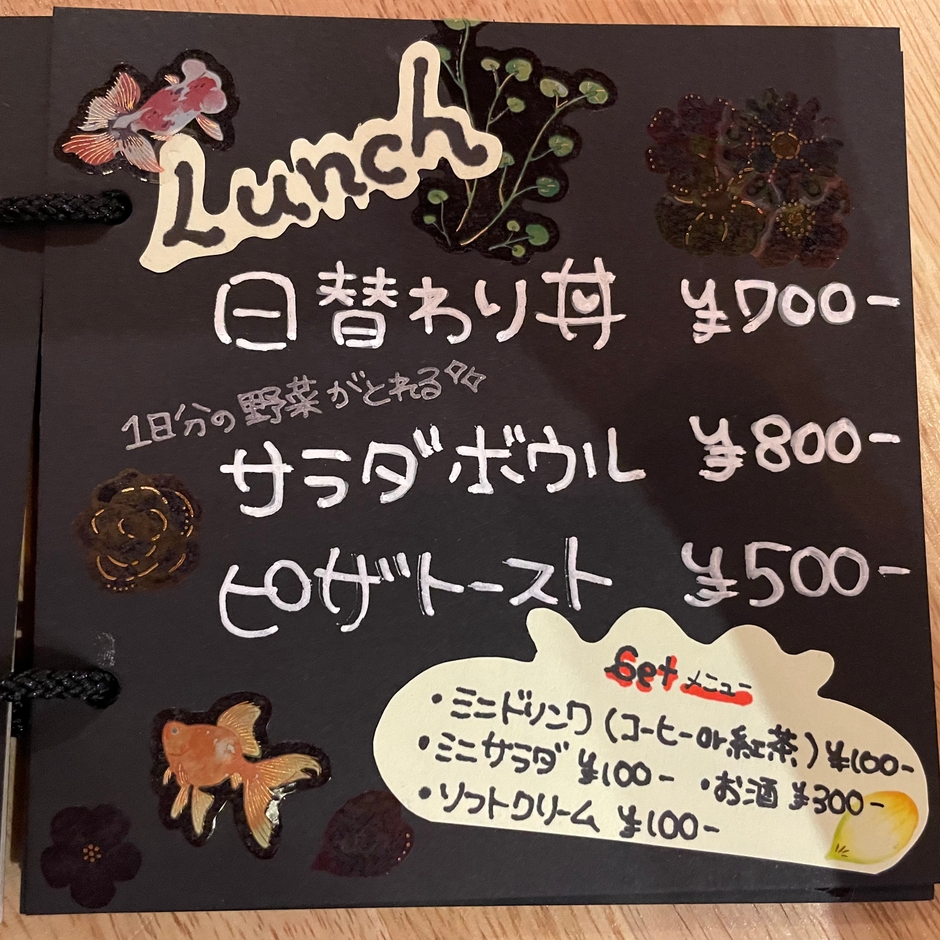 Lunch
日替わり丼 ¥700-
1日分の野菜がとれる
サラダボウル ¥800-
ピザトースト ¥500-
Set メニュー
・ミニドリンク (コーヒーor紅茶) ¥100-
・ミニサラダ ¥100- ・お酒 ¥300-
・ソフトクリーム ¥100-